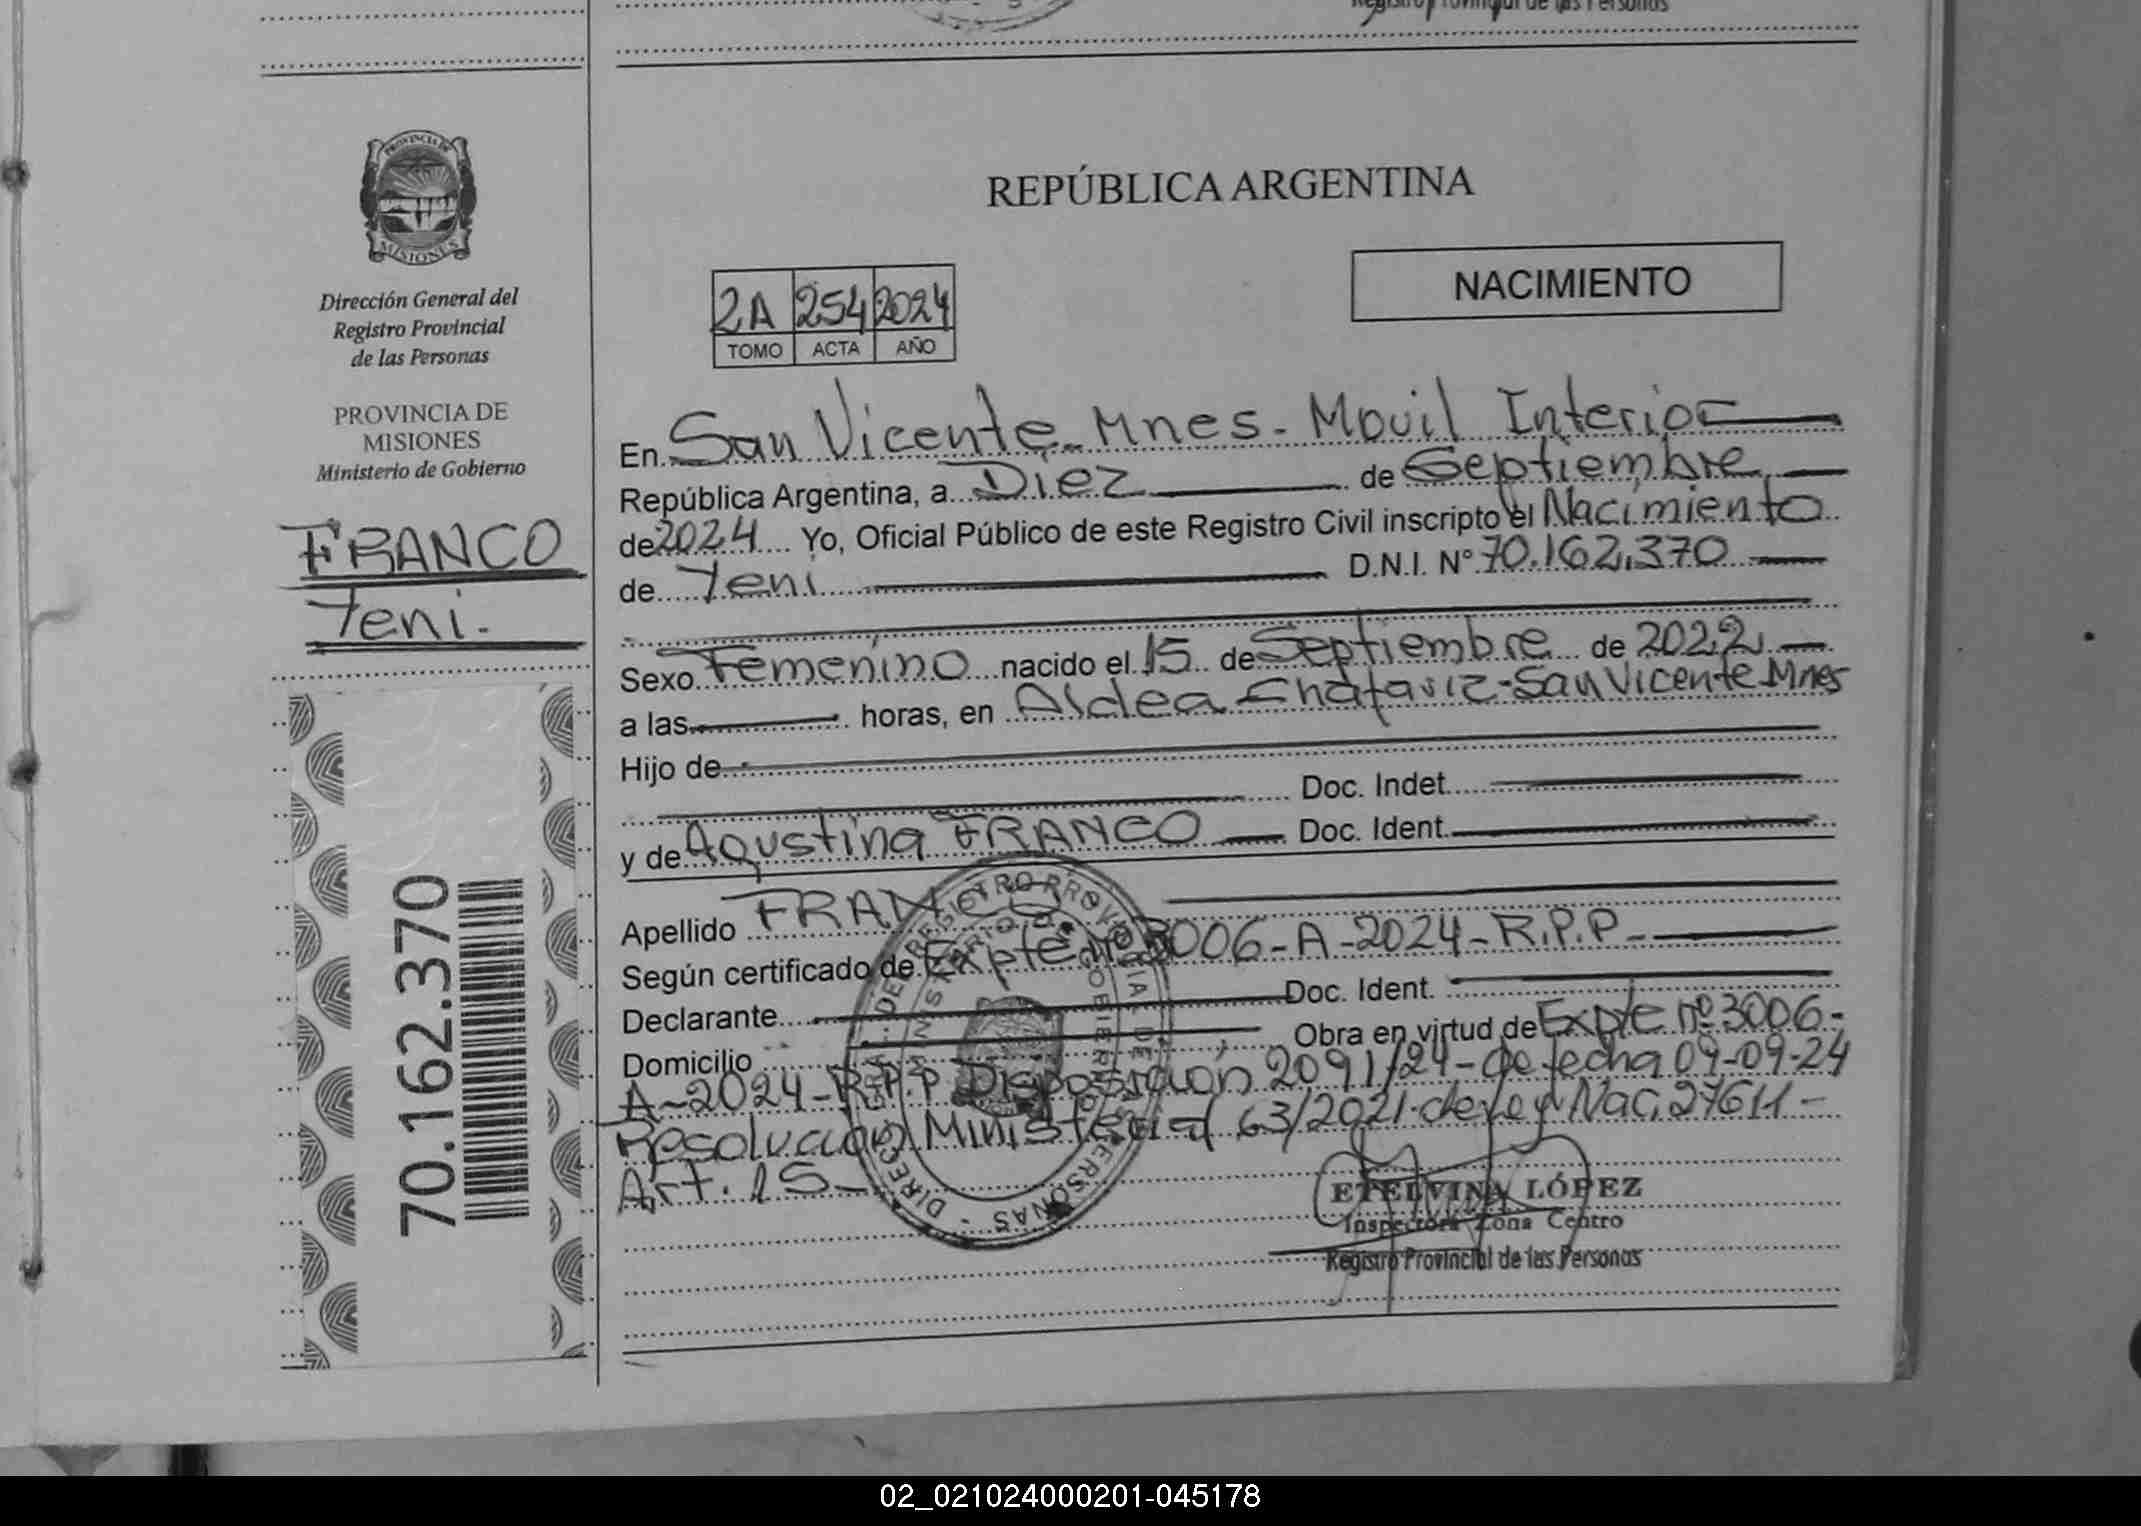 Registro Provincial de las Personas
PROVINCIA DE
MISIONES
Dirección General del
Registro Provincial
de las Personas
PROVINCIA DE
MISIONES
Ministerio de Gobierno
FRANCO
Yeni.
70.162.370
REPÚBLICA ARGENTINA
NACIMIENTO
2A 254 2024
TOMO ACTA AÑO
En San Vicente Mnes. Movil Interior
República Argentina, a Diez de Septiembre
de 2024 Yo, Oficial Público de este Registro Civil inscripto el Nacimiento
de Yeni D.N.I. N° 70.162.370
Sexo Femenino nacido el 15 de Septiembre de 2022
a las horas, en Aldea Chafariz - San Vicente Mnes
Hijo de
Doc. Indet.
y de Agustina FRANCO Doc. Ident.
Apellido FRANCO
Según certificado de Expte nº 3006-A-2024-R.P.P
Declarante Doc. Ident.
Domicilio Obra en virtud de Expte nº 3006-
A-2024-R.P.P Disposición 2091/24-de fecha 09-09-24
Resolución Ministerial 63/2021. de Ley Nac. 27611-
Art. 15-
ETELVINA LÓPEZ
Inspectora Zona Centro
Registro Provincial de las Personas
02_021024000201-045178